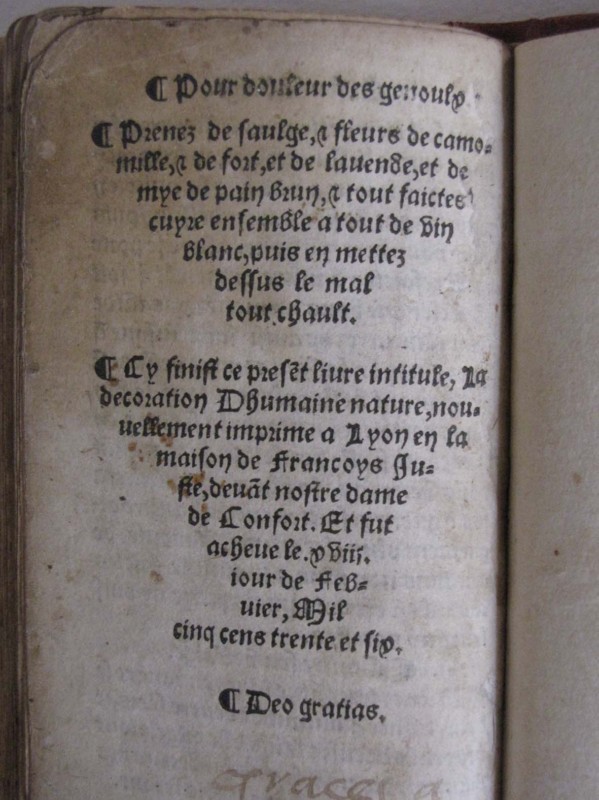 ¶ Pour douleur des genoulx
¶ Prenez de saulge, & fleurs de camo-
mille, & de fort, et de lauende, et de
mye de pain brun, & tout faictes
cuyre ensemble a tout de vin
blanc, puis en mettez
dessus le mal
tout chault.
¶ Cy finist ce presẽt liure intitule, La
decoration Dhumaine nature, nou-
uellement imprime a Lyon en la
maison de Francoys Ju-
ste, deuãt nostre dame
de Confort. Et fut
acheue le. xviij.
iour de Feb-
urier, Mil
cinq cens trente et six.
¶ Deo gratias.
Graces a